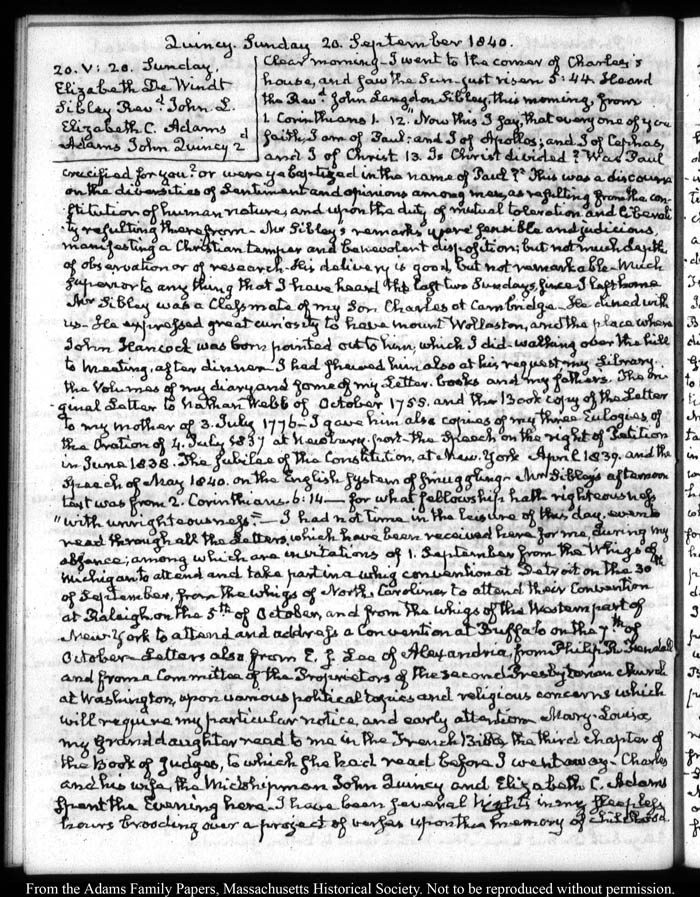 Quincy. Sunday 20. September 1840.
20. V: 20. Sunday.
Elizabeth De Windt
Sibley Revd. John L.
Elizabeth C. Adams
Adams John Quincy 2d
Clear morning—I went to the corner of Charles's
house, and saw the Sun just risen 5:44. Heard
the Revd. John Langdon Sibley, this morning, from
1. Corinthians 1. 12. "Now this I say, that every one of you
saith, I am of Paul; and I of Apollos; and I of Cephas,
and I of Christ 13. Is Christ divided? Was Paul
crucified for you? or were ye baptized in the name of Paul?" This was a discourse
on the diversities of Sentiment and opinions among men, as resulting from the con-
stitution of human nature, and upon the duty of mutual toleration and liberali-
ty resulting therefrom—Mr Sibley's remarks were sensible and judicious,
manifesting a Christian temper and benevolent disposition; but not much depth
of observation or of research—His delivery is good, but not remarkable—Much
superior to any thing that I have heard the last two Sundays, since I left home
Mr Sibley was a Classmate of my Son Charles at Cambridge—He dined with
us—He expressed great curiosity to have mount Wollaston, and the place where
John Hancock was born pointed out to him, which I did—walking over the hill
to Meeting, after dinner—I had shewed him also at his request my Library.
the Volumes of my diary, and some of my Letter-books and my fathers. The ori-
ginal Letter to Nathan Webb of October 1755. and the Book copy of the Letter
to my mother of 3. July 1776—I gave him also copies of my three Eulogies of
the Oration of 4. July 1837 at Newbury-port—the Speech on the right of Petition
in June 1838. The Jubilee of the Constitution, at New-York April 1839. and the
Speech of May 1840. on the English System of Smuggling—Mr Sibley's afternoon
text was from 2. Corinthians. 6:14—for what fellowship hath righteousness
"with unrighteousness?"—I had not time in the leisure of this day, even to
read through all the Letters, which have been received here for me, during my
absence; among which are invitations of 1. September from the Whigs of
Michigan to attend and take part in a whig convention at Detroit on the 30th
of September, from the whigs of North Carolina to attend their Convention
at Raleigh on the 5th of October, and from the whigs of the Western part of
New York to attend and address a Convention at Buffalo on the 7th of
October—Letters also from E. J. Lee of Alexandria, from Philip R. Fendall
and from a Committee of the Proprietors of the second Presbyterian church
at Washington, upon various political topics and religious concerns which
will require my particular notice, and early attention—Mary-Louisa
my Granddaughter read to me in the French Bible, the third chapter of
the Book of Judges, to which she had read before I went away—Charles
and his wife, the Midshipman John Quincy and Elizabeth C. Adams
spent the Evening here—I have been several Nights in my sleepless
hours brooding over a project of verses upon the memory of Childhood.
From the Adams Family Papers, Massachusetts Historical Society. Not to be reproduced without permission.